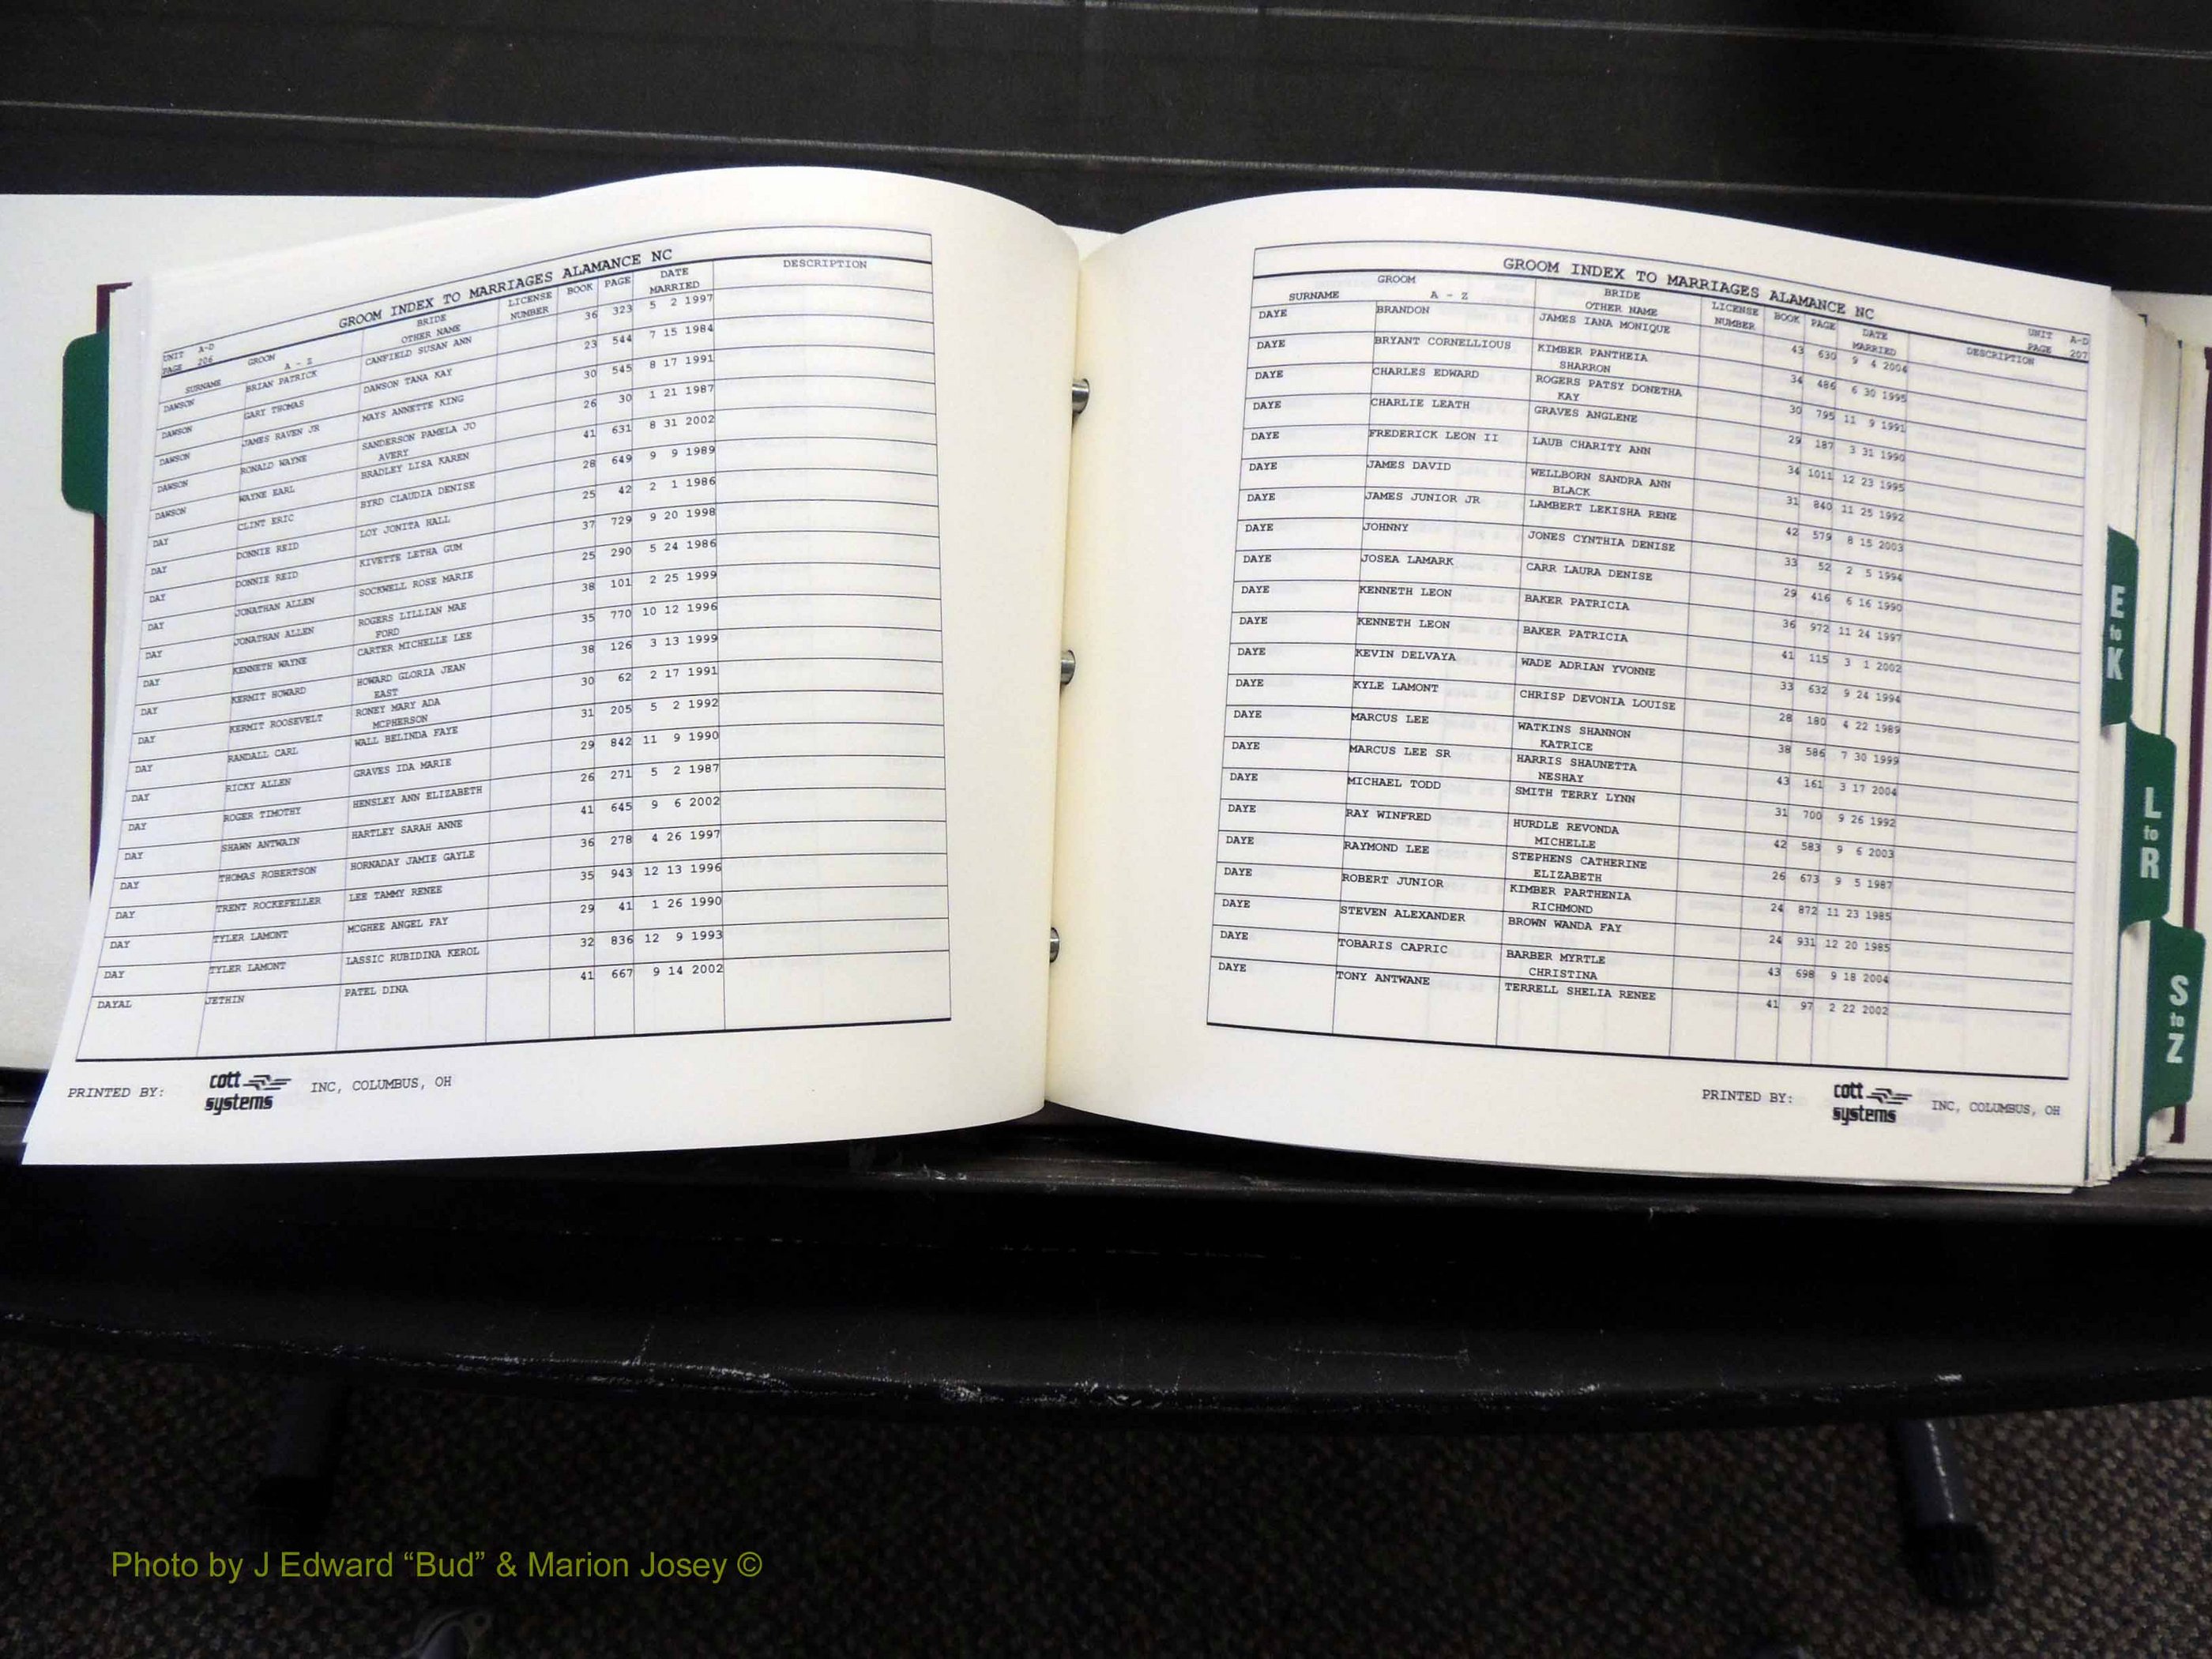 GROOM INDEX TO MARRIAGES ALAMANCE NC
UNIT A-D
PAGE 206
SURNAME GROOM A - Z BRIDE OTHER NAME LICENSE NUMBER BOOK PAGE DATE MARRIED DESCRIPTION
DAWSON BRIAN PATRICK CANFIELD SUSAN ANN 36 323 5 2 1997
DAWSON GARY THOMAS DAWSON TANA KAY 23 544 7 15 1984
DAWSON JAMES RAVEN JR MAYS ANNETTE KING 30 545 8 17 1991
DAWSON RONALD WAYNE SANDERSON PAMELA JO 26 30 1 21 1987
AVERY
DAWSON WAYNE EARL BRADLEY LISA KAREN 41 631 8 31 2002
DAY CLINT ERIC BYRD CLAUDIA DENISE 28 649 9 9 1989
DAY DONNIE REID LOY JONITA HALL 25 42 2 1 1986
DAY DONNIE REID KIVETTE LETHA GUM 37 729 9 20 1998
DAY JONATHAN ALLEN SOCKWELL ROSE MARIE 25 290 5 24 1986
DAY JONATHAN ALLEN ROGERS LILLIAN MAE 38 101 2 25 1999
FORD
DAY KENNETH WAYNE CARTER MICHELLE LEE 35 770 10 12 1996
DAY KERMIT HOWARD HOWARD GLORIA JEAN 38 126 3 13 1999
EAST
DAY KERMIT ROOSEVELT RONEY MARY ADA 30 62 2 17 1991
MCPHERSON
DAY RANDALL CARL WALL BELINDA FAYE 31 205 5 2 1992
DAY RICKY ALLEN GRAVES IDA MARIE 29 842 11 9 1990
DAY ROGER TIMOTHY HENSLEY ANN ELIZABETH 26 271 5 2 1987
DAY SHAWN ANTWAIN HARTLEY SARAH ANNE 41 645 9 6 2002
DAY THOMAS ROBERTSON HORNADAY JAMIE GAYLE 36 278 4 26 1997
DAY TRENT ROCKEFELLER LEE TAMMY RENEE 35 943 12 13 1996
DAY TYLER LAMONT MCGHEE ANGEL FAY 29 41 1 26 1990
DAY TYLER LAMONT LASSIC RUBIDINA KEROL 32 836 12 9 1993
DAYAL JETHIN PATEL DINA 41 667 9 14 2002
PRINTED BY: cott systems INC, COLUMBUS, OH
GROOM INDEX TO MARRIAGES ALAMANCE NC
UNIT A-D
PAGE 207
SURNAME GROOM A - Z BRIDE OTHER NAME LICENSE NUMBER BOOK PAGE DATE MARRIED DESCRIPTION
DAYE BRANDON JAMES IANA MONIQUE 43 630 9 4 2004
DAYE BRYANT CORNELLIOUS KIMBER PANTHEIA 34 486 6 30 1995
SHARRON
DAYE CHARLES EDWARD ROGERS PATSY DONETHA 30 795 11 9 1991
KAY
DAYE CHARLIE LEATH GRAVES ANGLENE 29 187 3 31 1990
DAYE FREDERICK LEON II LAUB CHARITY ANN 34 1011 12 23 1995
DAYE JAMES DAVID WELLBORN SANDRA ANN 31 840 11 25 1992
BLACK
DAYE JAMES JUNIOR JR LAMBERT LEKISHA RENE 42 579 8 15 2003
DAYE JOHNNY JONES CYNTHIA DENISE 33 52 2 5 1994
DAYE JOSEA LAMARK CARR LAURA DENISE 29 416 6 16 1990
DAYE KENNETH LEON BAKER PATRICIA 36 972 11 24 1997
DAYE KENNETH LEON BAKER PATRICIA 41 115 3 1 2002
DAYE KEVIN DELVAYA WADE ADRIAN YVONNE 33 632 9 24 1994
DAYE KYLE LAMONT CHRISP DEVONIA LOUISE 28 180 4 22 1989
DAYE MARCUS LEE WATKINS SHANNON 38 586 7 30 1999
KATRICE
DAYE MARCUS LEE SR HARRIS SHAUNETTA 43 161 3 17 2004
NESHAY
DAYE MICHAEL TODD SMITH TERRY LYNN 31 700 9 26 1992
DAYE RAY WINFRED HURDLE REVONDA 42 583 9 6 2003
MICHELLE
DAYE RAYMOND LEE STEPHENS CATHERINE 26 673 9 5 1987
ELIZABETH
DAYE ROBERT JUNIOR KIMBER PARTHENIA 24 872 11 23 1985
RICHMOND
DAYE STEVEN ALEXANDER BROWN WANDA FAY 24 931 12 20 1985
DAYE TOBARIS CAPRIC BARBER MYRTLE 43 698 9 18 2004
CHRISTINA
DAYE TONY ANTWANE TERRELL SHELIA RENEE 41 97 2 22 2002
PRINTED BY: cott systems INC, COLUMBUS, OH
E to K
L to R
S to Z
Photo by J Edward “Bud” & Marion Josey ©